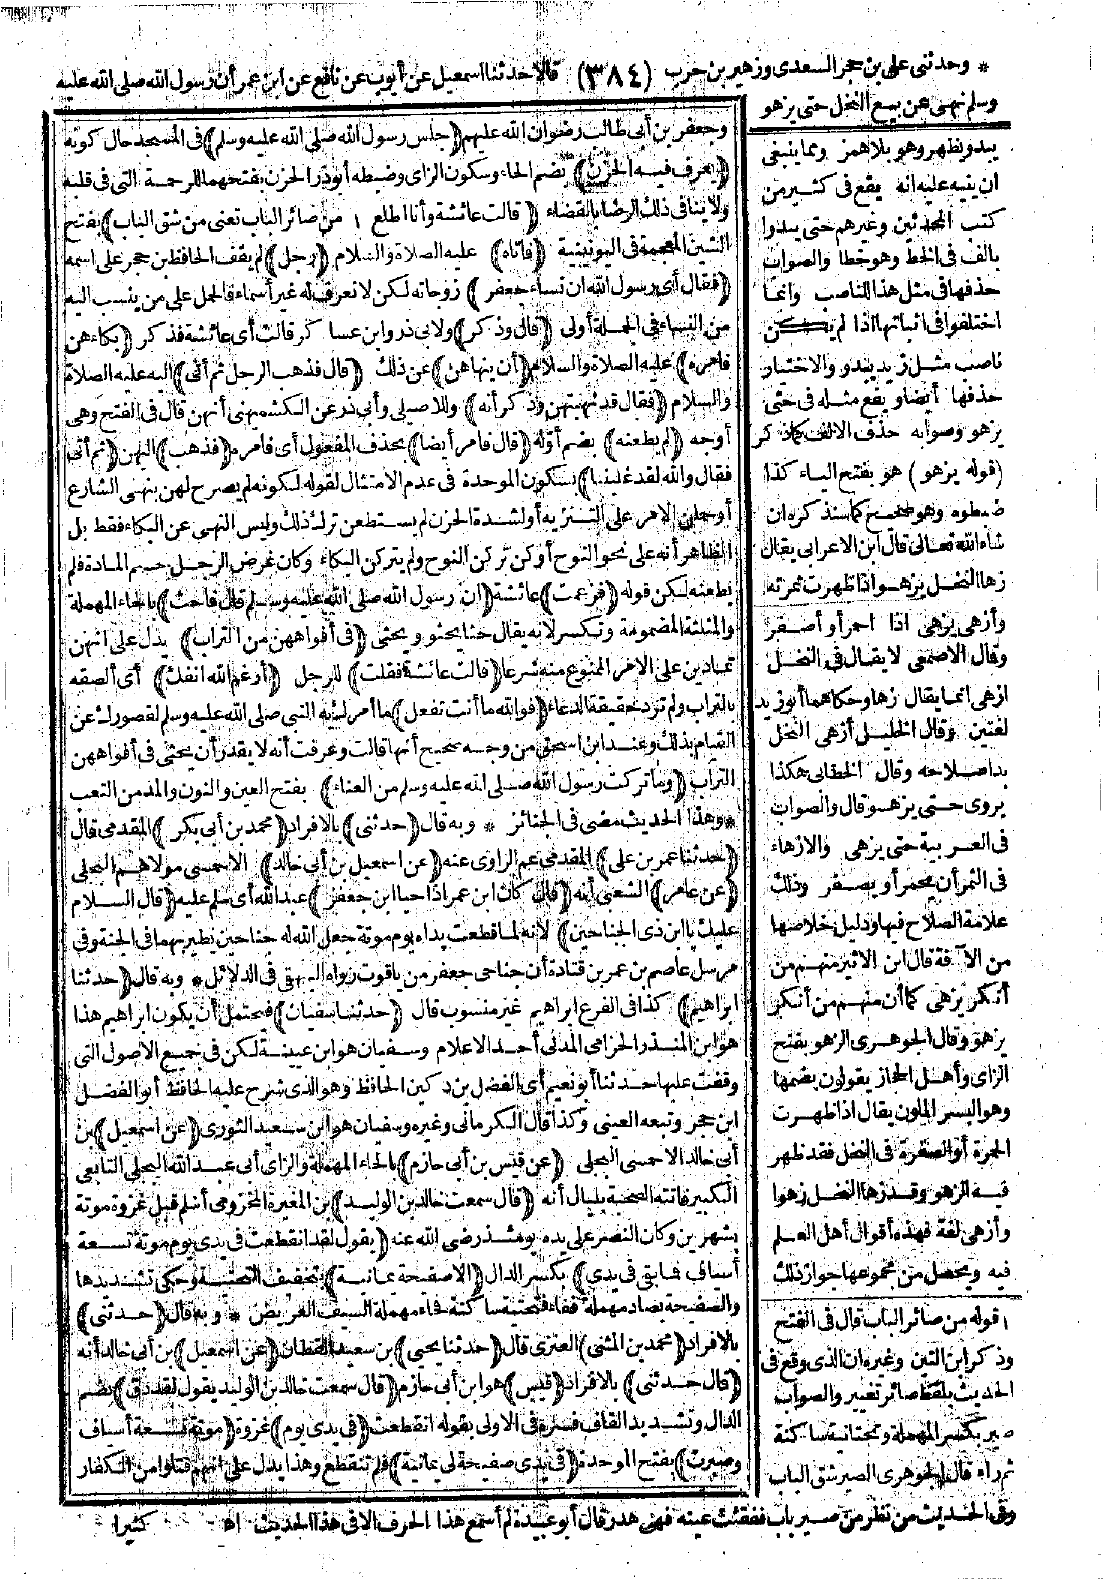 * وحدثنى على بن حجر السعدى وزهير بن حرب (٣٨٤) قالا حدثنا اسمعيل عن أيوب عن نافع عن ابن عمر أن رسول الله صلى الله عليه
وسلم نهى عن بيع النخل حتى يزهو
يبدو يظهر وهو بلا همز ومما ينبغى
ان ينبه عليه انه يقع فى كثير من
كتب المحدثين وغيرهم حتى يبدوا
بالف فى الخط وهو خطأ والصواب
حذفها فى مثل هذا للناصب وانما
اختلفوا فى اثباتها اذا لم يكن
ناصب مثل زيد يبدو والاختيار
حذفها أيضا ويقع مثله فى حتى
يزهو وصوابه حذف الالف كما ذكر
(قوله يزهو) هو بفتح الياء كذا
ضبطوه وهو صحيح كما سنذكره ان
شاء الله تعالى قال ابن الاعرابى يقال
زها النخل يزهو اذا ظهرت ثمرته
وأزهى يزهى اذا احمر أو أصفر
وقال الاصمعى لا يقال فى النخل
ازهى انما يقال زها وحكاهما أبو زيد
لغتين وقال الخليل أزهى النخل
بدا صلاحه وقال الخطابى هكذا
يروى حتى يزهو قال والصواب
فى العربية حتى يزهى والازهاء
فى الثمر أن يحمر أو يصفر وذلك
علامة الصلاح فيها ودليل خلاصها
من الآفة قال ابن الاثير منهم من
أنكر يزهى كما أن منهم من أنكر
يزهو وقال الجوهرى الزهو بفتح
الزاى وأهل الحجاز يقولون بضمها
وهو البسر الملون يقال اذا ظهرت
الحمرة أو الصفرة فى النخل فقد ظهر
فيه الزهو وقد زها النخل زهوا
وأزهى لغة فهذه أقوال أهل العلم
فيه ويحصل من مجموعها جواز ذلك
١ قوله من صائر الباب قال فى الفتح
وذكر ابن التين وغيره ان الذى وقع فى
الحديث بلفظ صائر تغيير والصواب
صير بكسر المهملة وتحتانية ساكنة
ثم راء قال الجوهرى الصير شق الباب
وفى الحديث من نظر من صير باب ففقئت عينه فهى هدر قال أبو عبيدة لم أسمع هذا الحرف الا فى هذا الحديث اه
وجعفر بن أبى طالب رضوان الله عليهم (جلس رسول الله صلى الله عليه وسلم) فى المسجد حال كونه
(يعرف فيه الحزن) بضم الحاء وسكون الزاى وضبطه أبو ذر الحزن بفتحهما للرحمة التى فى قلبه
ولا ينافى ذلك الرضا بالقضاء (قالت عائشة وأنا اطلع ١ من صائر الباب تعنى من شق الباب) بفتح
الشين المعجمة فى اليونينية (فأتاه) عليه الصلاة والسلام (رجل) لم يقف الحافظ بن حجر على اسمه
(فقال أى رسول الله ان نساء جعفر) زوجاته لكن لا نعرف له غير أسماء فالحمل على من ينسب اليه
من النساء فى الجملة أولى (قال وذكر) ولابى ذر وابن عساكر قالت أى عائشة فذكر (بكاءهن
فأمره) عليه الصلاة والسلام (أن ينهاهن) عن ذلك (قال فذهب الرجل ثم أتى) اليه عليه الصلاة
والسلام (فقال قد نهيتهن وذكر أنه) وللاصيلى وأبى ذر عن الكشميهنى أنهن قال فى الفتح وهى
أوجه (لم يطعنه) بضم أوله (قال فأمر أيضا) بحذف المفعول أى فأمره (فذهب) اليهن (ثم أتى
فقال والله لقد غلبننا) بسكون الموحدة فى عدم الامتثال لقوله لكونه لم يصرح لهن بنهى الشارع
أو حملن الامر على التنزيه أو لشدة الحزن لم يستطعن ترك ذلك وليس النهى عن البكاء فقط بل
الظاهر أنه على نحو النوح أو كن تركن النوح ولم يتركن البكاء وكان غرض الرجل حسم المادة فلم
يطعنه لكن قوله (فزعمت) عائشة (ان رسول الله صلى الله عليه وسلم قال فاحث) بالحاء المهملة
والمثلثة المضمومة وتكسر لانه يقال حثا يحثو ويحثى (فى أفواههن من التراب) يدل على انهن
تمادين على الامر الممنوع منه شرعا (قالت عائشة فقلت) للرجل (أرغم الله انفك) أى ألصقه
بالتراب ولم ترد حقيقة الدعاء (فوالله ما أنت تفعل) ما أمرك به النبى صلى الله عليه وسلم لقصورك عن
القيام بذلك وعند ابن اسحق من وجه صحيح أنها قالت وعرفت أنه لا يقدر أن يحثى فى أفواههن
التراب (وما تركت رسول الله صلى الله عليه وسلم من العناء) بفتح العين والنون والمد من التعب
*وهذا الحديث مضى فى الجنائز * وبه قال (حدثنى) بالافراد (محمد بن أبى بكر) المقدمى قال
(حدثنا عمر بن على) المقدمى عم الراوى عنه (عن اسمعيل بن أبى خالد) الاحمسى مولاهم البجلى
(عن عامر) الشعبى أنه (قال كان ابن عمر اذا حيا ابن جعفر) عبد الله أى سلم عليه (قال السلام
عليك يا ابن ذى الجناحين) لانه لما قطعت يداه يوم موتة جعل الله له جناحين يطير بهما فى الجنة وفى
مرسل عاصم بن عمر بن قتادة أن جناحى جعفر من ياقوت رواه البيهقى فى الدلائل * وبه قال (حدثنا
ابراهيم) كذا فى الفرع ابراهيم غير منسوب قال (حدثنا سفيان) فيحتمل أن يكون ابراهيم هذا
هو ابن المنذر الحزامى المدنى أحد الاعلام وسفيان هو ابن عيينة لكن فى جميع الاصول التى
وقفت عليها حدثنا أبو نعيم أى الفضل بن دكين الحافظ وهو الذى شرح عليه الحافظ أبو الفضل
ابن حجر وتبعه العينى وكذا قال الكرمانى وغيره وسفيان هو ابن سعيد الثورى (عن اسمعيل) بن
أبى خالد الاحمسى البجلى (عن قيس بن أبى حازم) بالحاء المهملة والزاى أبى عبد الله البجلى التابعى
الكبير فاتته الصحبة بليال أنه (قال سمعت خالد بن الوليد) بن المغيرة المخزومى أسلم قبل غزوة موتة
بشهرين وكان النصر على يده يومئذ رضى الله عنه (يقول لقد انقطعت فى يدى يوم موتة تسعة
أسياف فما بقى فى يدى) بكسر الدال (الا صفيحة يمانية) بتخفيف التحتية وحكى تشديدها
والصفيحة بصاد مهملة ففاء فتحتية ساكنة فحاء مهملة السيف العريض * وبه قال (حدثنى)
بالافراد (محمد بن المثنى) العنزى قال (حدثنا يحيى) بن سعيد القطان (عن اسمعيل) بن أبى خالد أنه
(قال حدثنى) بالافراد (قيس) هو ابن أبى حازم (قال سمعت خالد بن الوليد يقول لقد دق) بضم
الدال وتشديد القاف فسره فى الاولى بقوله انقطعت (فى يدى يوم) غزوة (موتة تسعة أسياف
وصبرت) بفتح الموحدة (فى يدى صفيحة لى يمانية) فلم تنقطع وهذا يدل على انهم قتلوا من الكفار
كثيرا